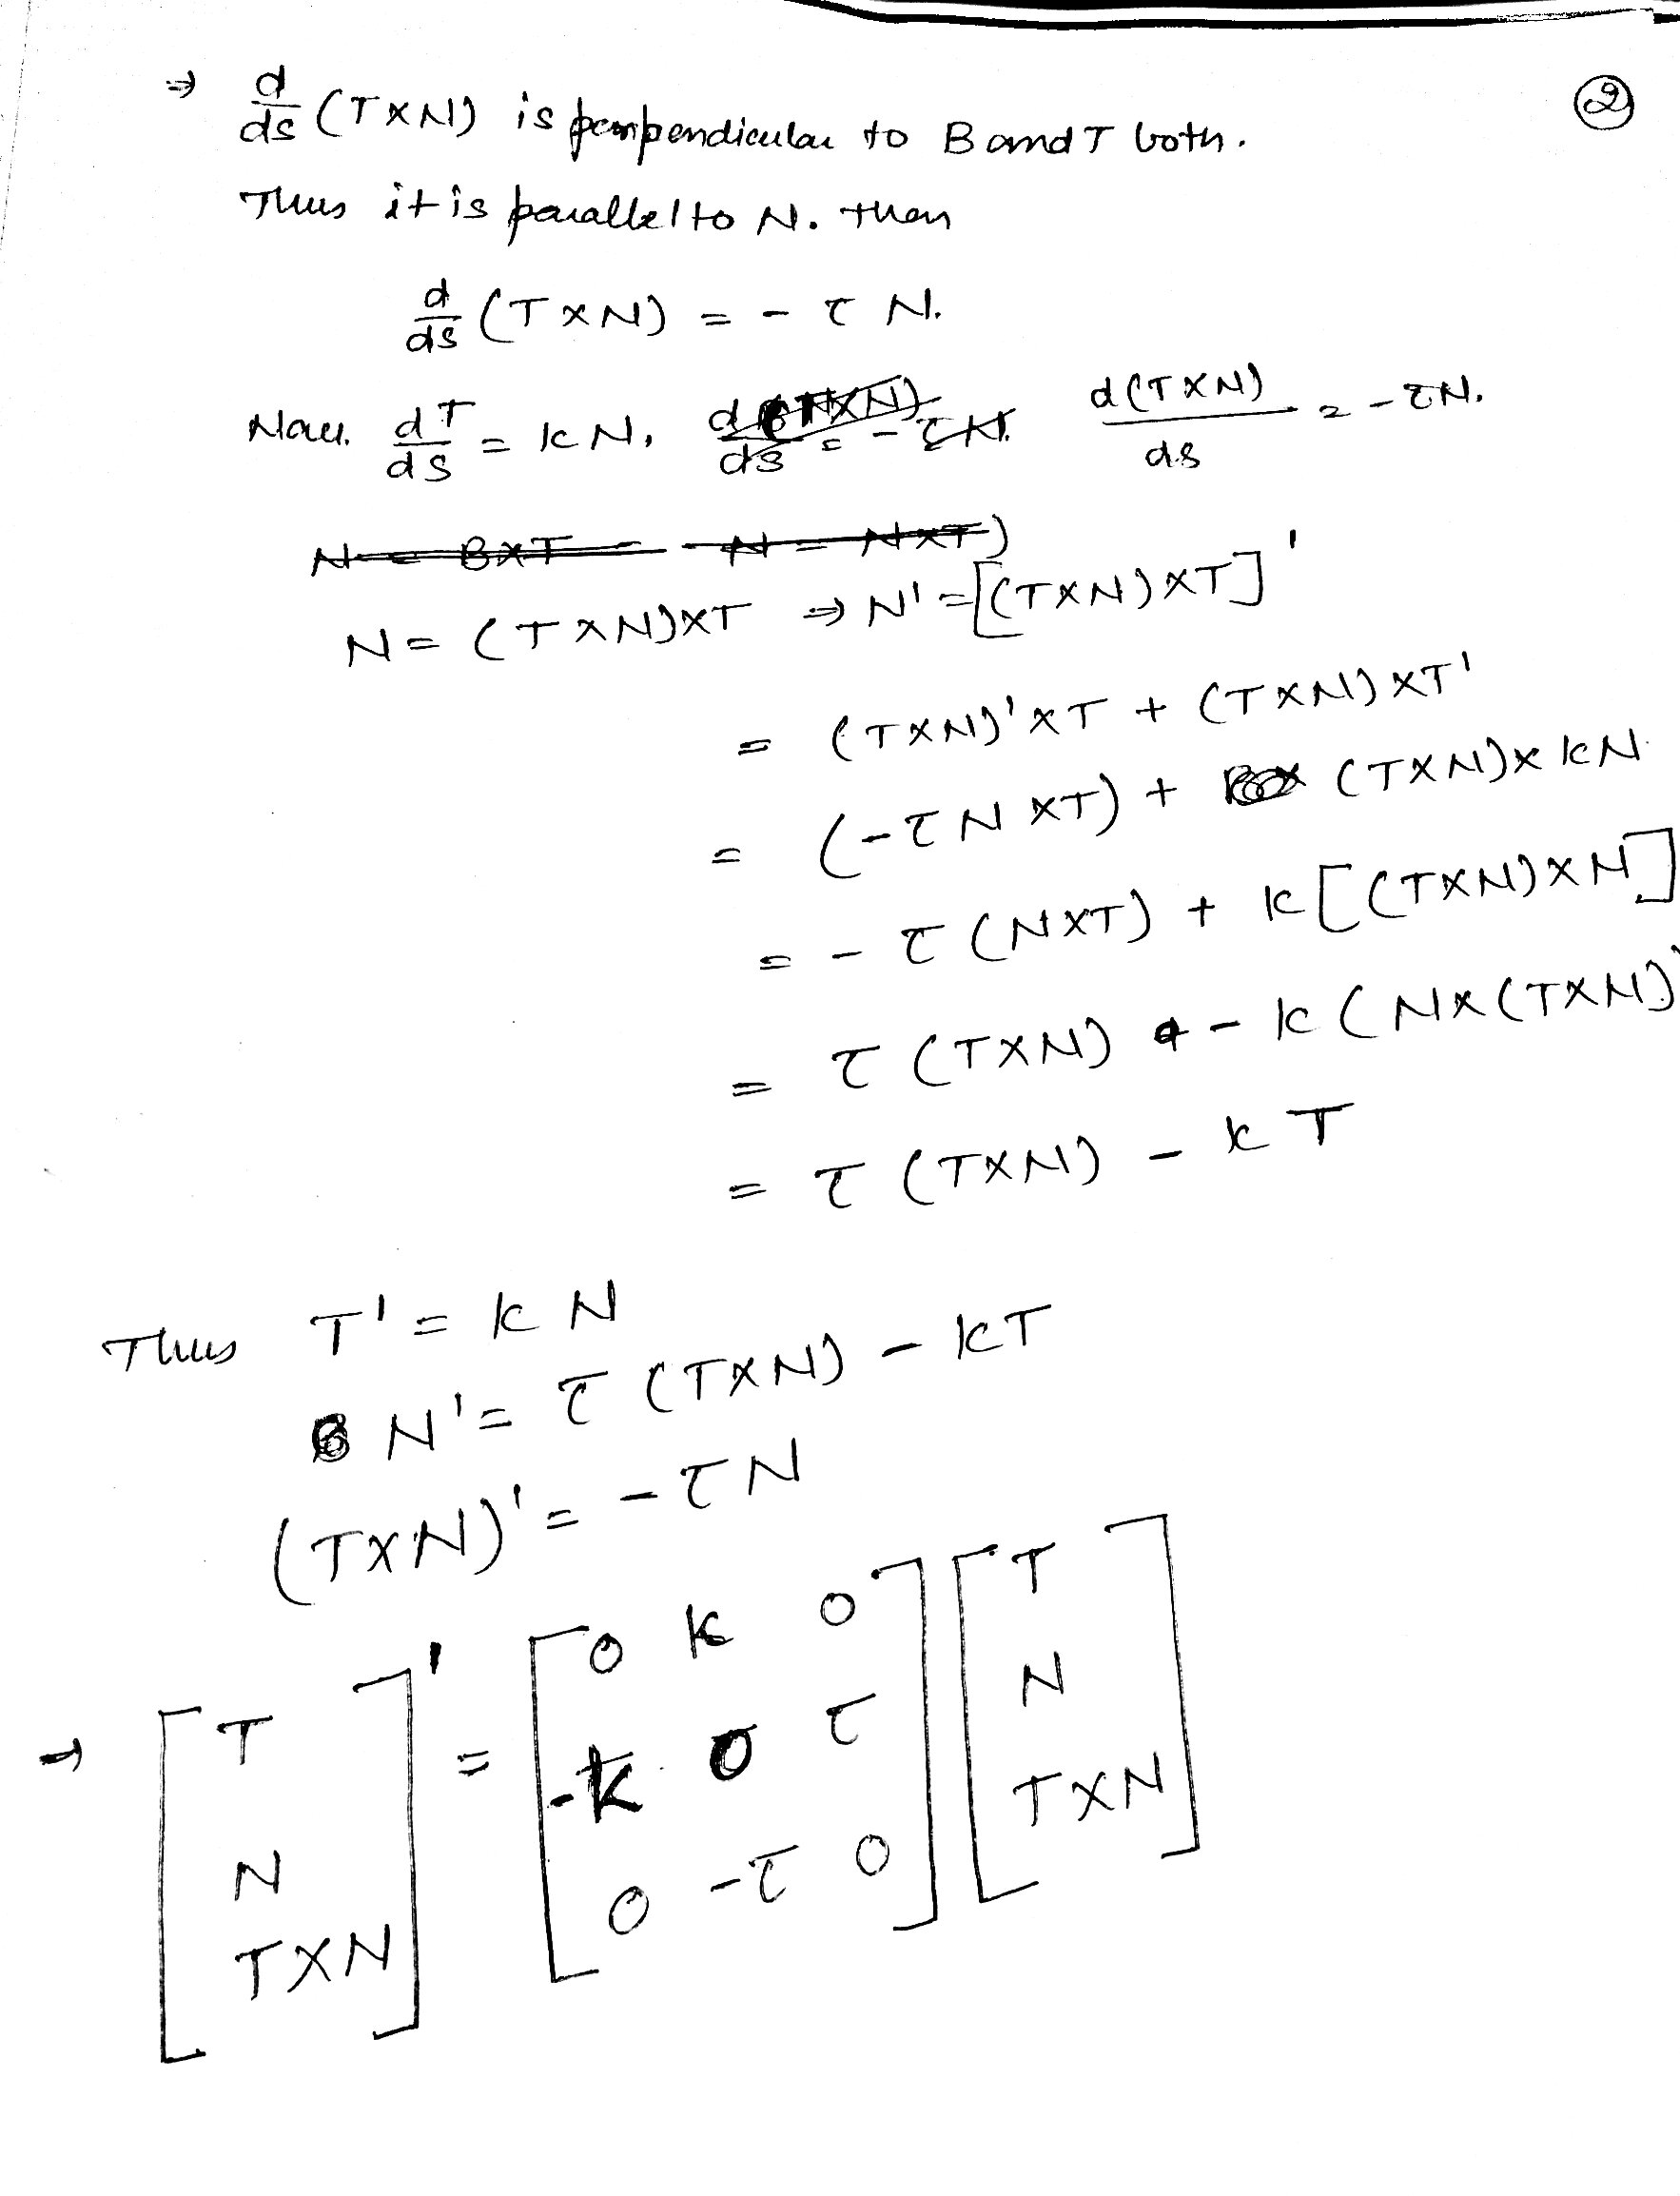 ②
⇒ d/ds (T×N) is perpendicular to B and T both.
Thus it is parallel to N. Then
d/ds (T×N) = - τ N.
Now dT/ds = kN, d(T×N)/ds = -τN. d(T×N)/ds = -τN.
N = B×T N = N×T)
N = (T×N)×T ⇒ N' = [(T×N)×T]'
= (T×N)'×T + (T×N)×T'
= (-τN×T) + (T×N)×kN
= -τ(N×T) + k[(T×N)×N]
= τ(T×N) - k(N×(T×N))
= τ(T×N) - kT
Thus T' = kN
N' = τ(T×N) - kT
(T×N)' = -τN
⇒ [T N T×N]' = [0 k 0 -k 0 τ 0 -τ 0] [T N T×N]